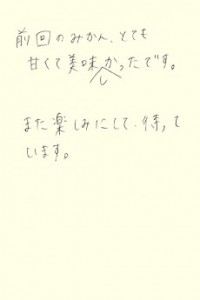 前回のみかん、とても
甘くて美味しかったです。
また楽しみにして、待って
います。